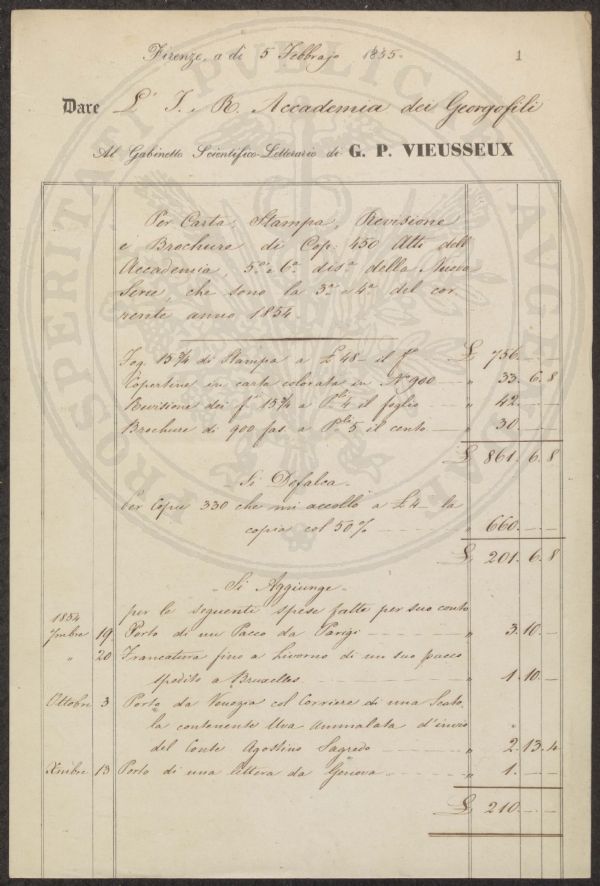 Firenze, a dì 5 Febbrajo 1855. 1
Dare L'I. R. Accademia dei Georgofili
Al Gabinetto Scientifico-Letterario di G. P. VIEUSSEUX
Per Carta, Stampa, Revisione
e Brochure di Cop: 450 Atti dell'
Accademia, 5ª e 6ª disª della Nuova
Serie, che sono la 3ª e 4ª del cor
rente anno 1854.
Fog. 15¾ di Stampa a £ 48 il fº £ 756. — —
Copertine in carta colorata in Nº 900 — " 33. 6. 8
Revisione dei fº 15¾ a Pli 4 il foglio " 42. — —
Brochure di 900 fas. a Pli 5 il cento — " 30. — —
£ 861. 6. 8
Si Defalca
Per Copie 330 che mi accollo a £ 4 la
copia col 50% " 660. — —
£ 201. 6. 8
Si Aggiunge
per le seguente spese fatte per suo conto
1854
7mbre 19 Porto di un Pacco da Parigi " 3. 10. —
" 20 Francatura fino a Livorno di un suo pacco
spedito a Bruxelles " 1. 10. —
Ottobre 3 Porto da Venezia col Corriere di una Scato-
la contenente Uva ammalata d'invio
del Conte Agostino Sagredo " 2. 13. 4
Xmbre 13 Porto di una lettera da Genova " 1. — —
£ 210. — —
PROSPERITATI PUBLICAE AUGENDAE